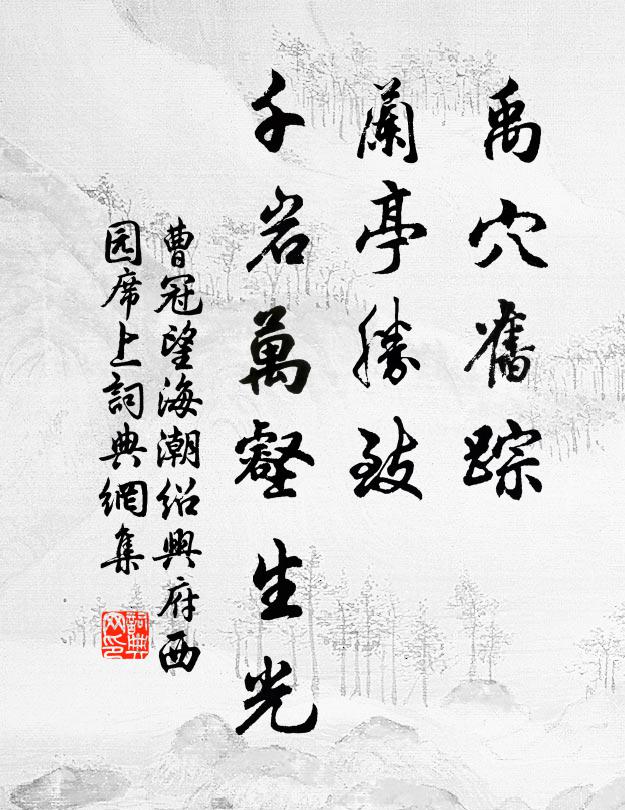 禹穴舊踪
蘭亭勝致
千岩萬壑生光
曹冠望海潮紹興府西
园席上詞典網集
詞典
网印